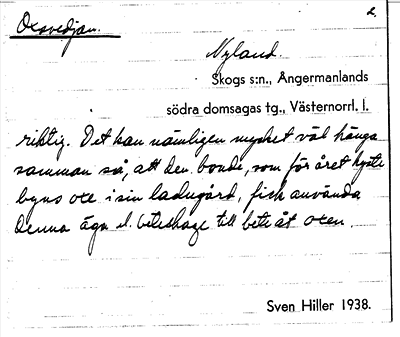 Oxsvedjan.
2.
Nyland.
Skogs s:n., Ångermanlands
södra domsagas tg., Västernorrl. l.
riktig. Det kan nämligen mycket väl hänga
samman så, att den bonde, som för året hyste
byns oxe i sin ladugård, fick använda
denna äga el. beteshage till bete åt oxen.
Sven Hiller 1938.